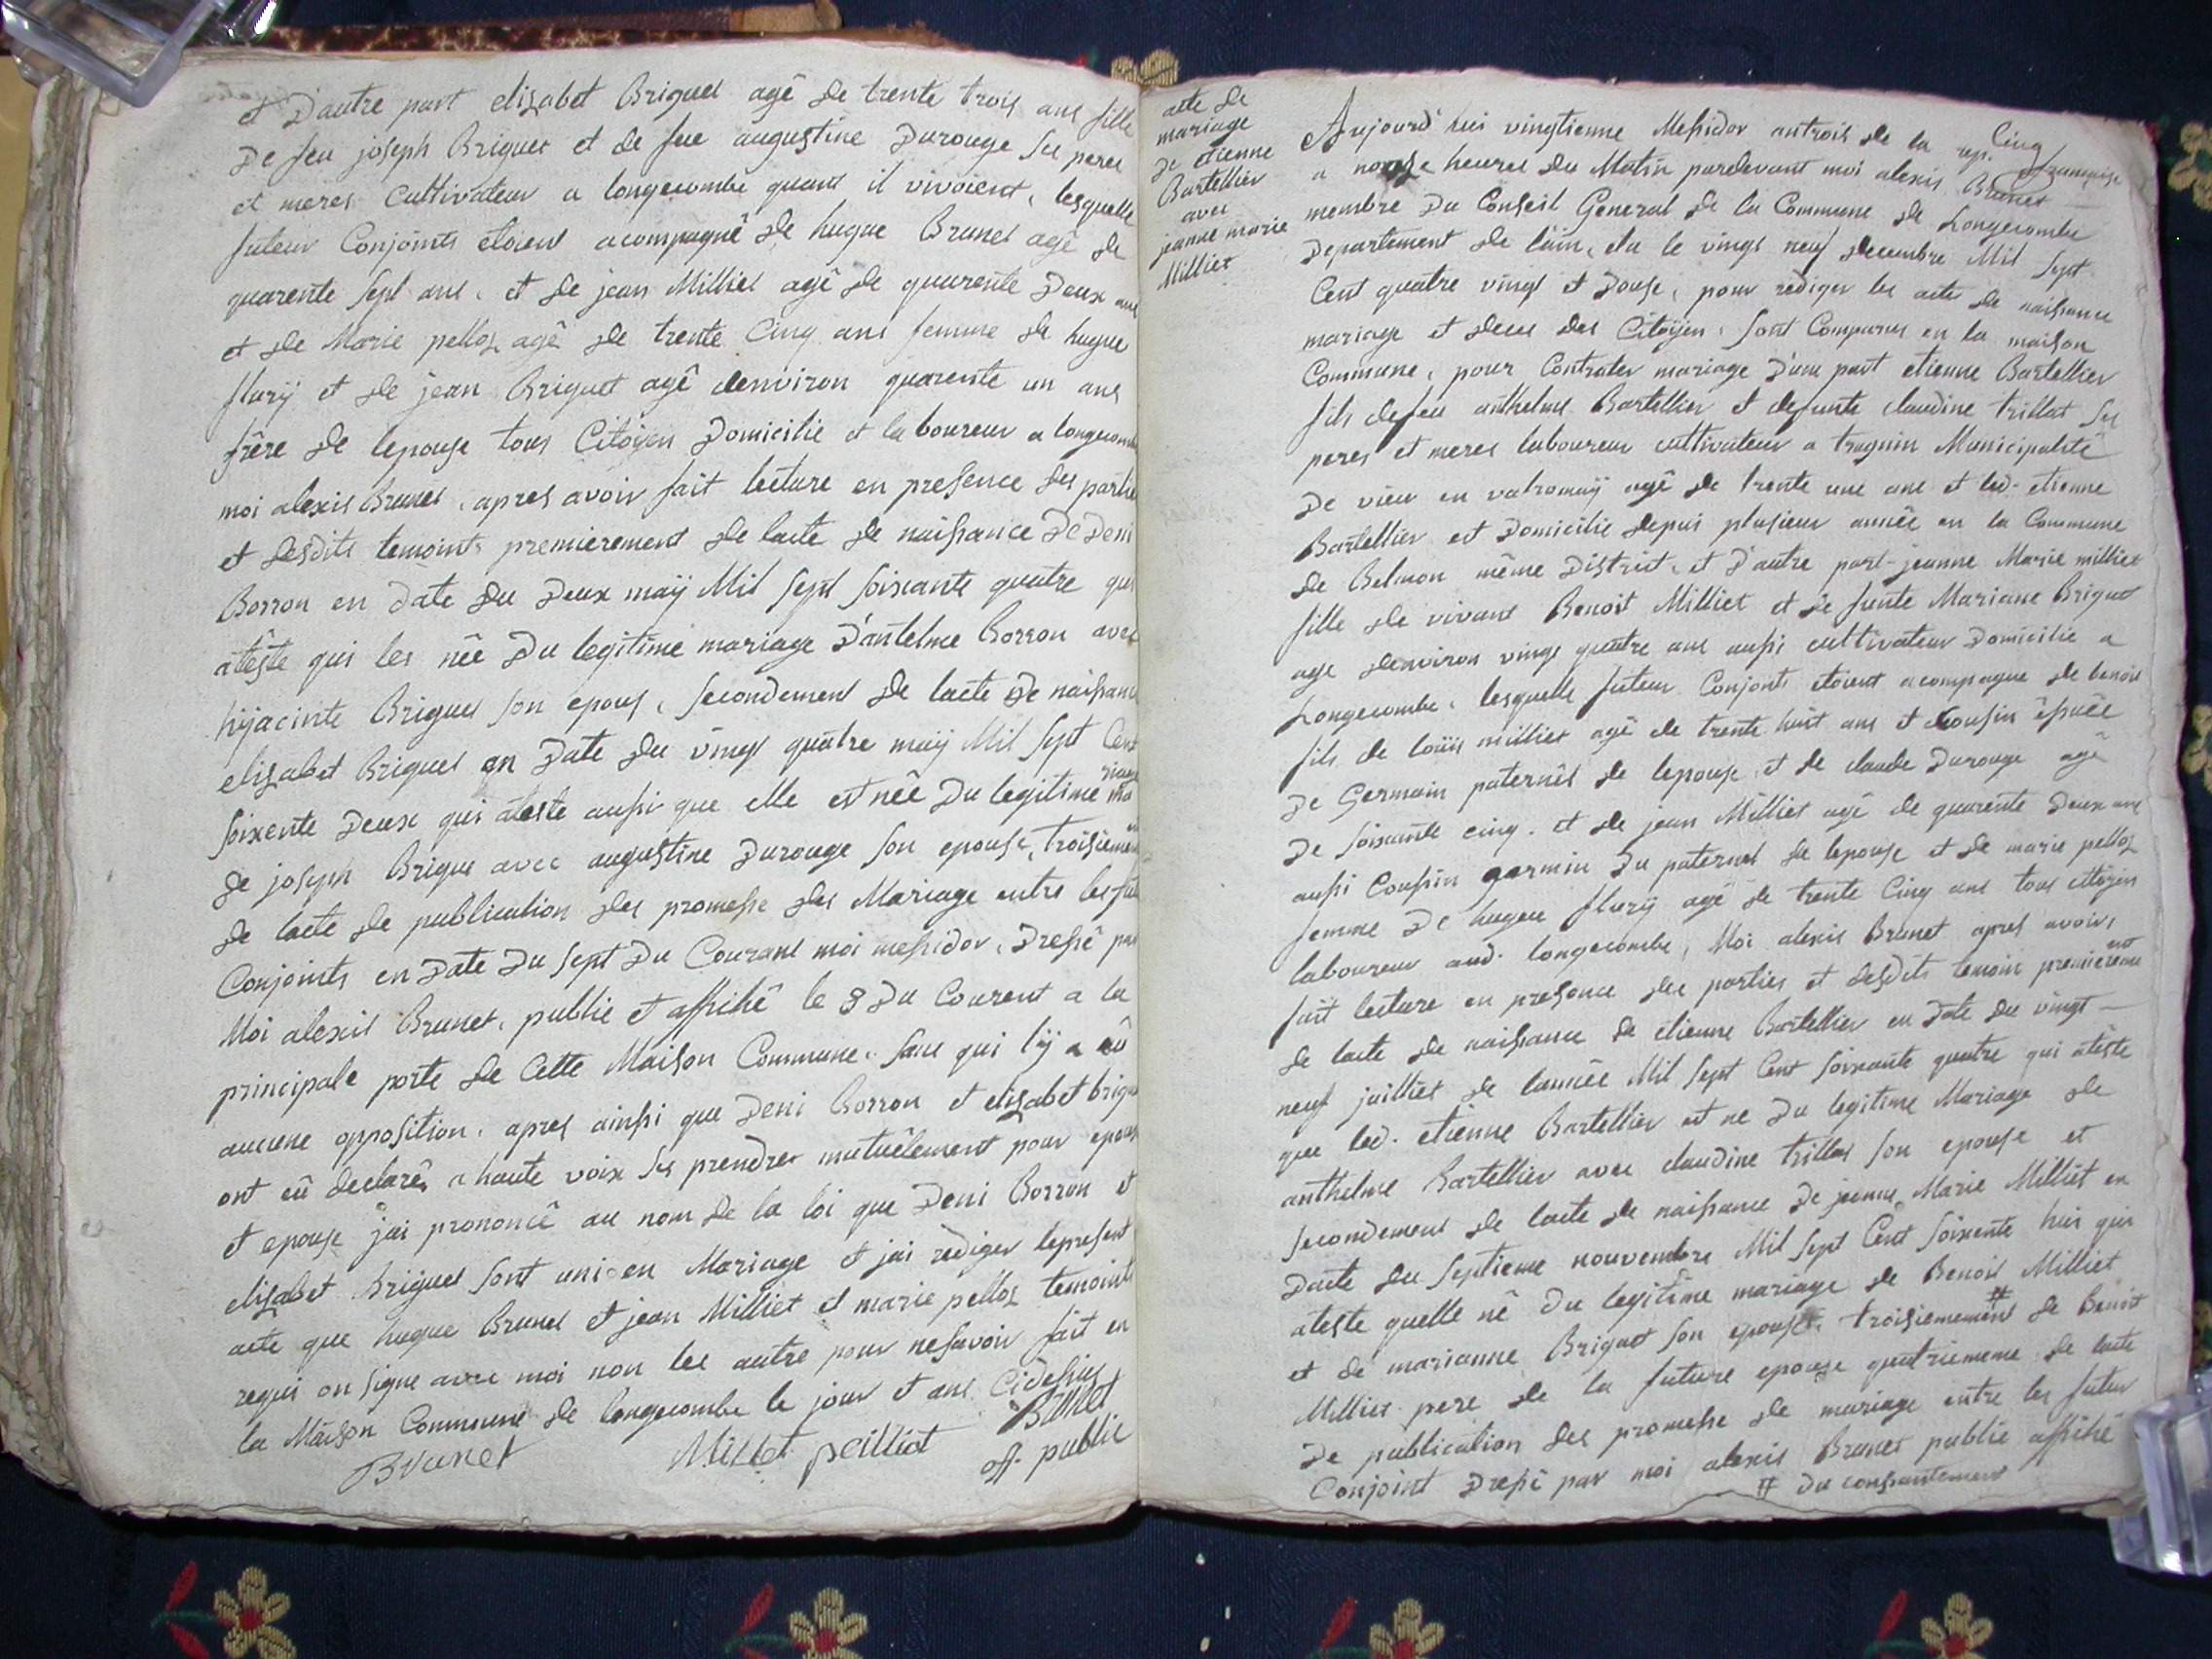 et D'autre part elisabet Briguet agê de trente trois ans fille
De feu joseph Briguet et de fue augustine Durouge ses peres
et meres Cultivateur a longecombe quant il vivoient, lesquelle
futeur Conjoints étoient acompagnê de hugue Brunet agê de
quarente sept ans, et de jean Milliet agê de quarente Deux ans
et de Marie pelloz agê de trente Cinq ans femme de hugue
flurÿ et de jean Briguet agê denviron quarente un ans
frère de lepouse tous Citoÿen Domicilie et laboureur a longecombe
moi alexis Brunet, apres avoir fait lecture en presence des partie
et desdits temoints premierement de lacte de naissance De Deni
Borron en date du Deux maÿ Mil sept soixante quatre qui
ateste qui les née Du legitime mariage D'antelme Borron avec
hÿjacinte Briguet son epous, secondement de lacte De naissance
elisabet Briguet en Date du vingt quatre maÿ Mil sept Cent
soixente Deux qui ateste aussi que elle est née Du legitime mariage
de joseph Brigue avec augustine Durouge son epouse, troisiement
de lacte de publication des promesse des Mariage entre les futur
Conjoints en Date Du sept Du Courant moi messidor, Dressé par
Moi alexis Brunet, publie et affiché le 8 Du Courent a la
principale porte de Cette Maison Commune, sans qui lÿ a eû
aucune opposition, apres ainssi que Deni Borron et elisabet brigue
ont eû declarê a haute voix ses prendre mutuêlement pour epous
et epouse jai prononcé au nom de la loi que Deni Borron et
elisabet Briguet sont uni en Mariage et jai rediger lepresent
acte que hugue Brunet et jean Milliet et marie pelloz temoints
requi on signe avec moi non les autre pour nesavoir fait en
la Maison Commune de longecombe le jour et ans Cidessus
Brunet Millet peilliot Brunet
off. public
acte de
mariage
De etienne
Bartellier
avec
jeanne marie
Milliet
Cinq
Aujourd'hui vingtienne Messidor antrois de la rep. francaise
a nouse heures du Matin pardevant moi alexis Brunet
membre Du Conseil General de la Commune de Longecombe
Departement de l'ain, elu le vingt neuf decembre Mil sept
Cent quatre vingt et Douse, pour rediger les actes de naissance
mariage et deces des Citoÿen, sont Comparus en la maison
Commune, pour Contrater mariage D'une part etienne Bartellier
fils defeu anthelme Bartellier et defunte claudine trillat ses
peres et meres laboureur cultivateur a traquin Municipalité
De vieu en valromaÿ agé de trente une ans et led. etienne
Bartellier est Domicilie depuis plusieur année en la Commune
de Belmon même District, et D'autre part jeanne Marie milliet
fille de vivant Benoit Milliet et de funte Mariane Briguet
age denviron vingt quatre ans aussi cultivateur Domicilie a
Longecombe, lesquelle futeur Conjonts étoient acompagne de benoit
fils de loüis milliet agê de trente huit ans et Cousin
De Germain paternêl de lepouse, et de claude Durouge agê
De soixante cinq, et de jean Milliet agê de quarente Deux ans
aussi Coussin germin Du paternel de lepouse et de marie pelloz
femme De hugue flurÿ agé de trente Cinq ans tous citoÿen
laboureur aud. longecombe, Moi alexis Brunet apres avoir
fait lecture en presence des parties et desdits temoin premierement
de lacte de naissance de etienne Bartellier en Date du vingt
neuf juilliet de lannée Mil sept Cent soixante quatre qui ateste
que led. etienne Bartellier est ne Du legitime Mariage de
anthelme Bartellier avec claudine trillat son epouse et
secondement de lacte de naissance De jeanne Marie Milliet en
Date du septieme nouvembre Mil sept Cent soixente huit qui
ateste quelle né Du legitime mariage de Benoit Milliet
et de marianne Briguet son epouse, troisiemement # de Benoit
Milliet pere de la future epouse quatriememe de lacte
De publication des promesse de mariage entre les futur
Conjoint Dressé par moi alexis Brunet publie affiché
# Du conssantement